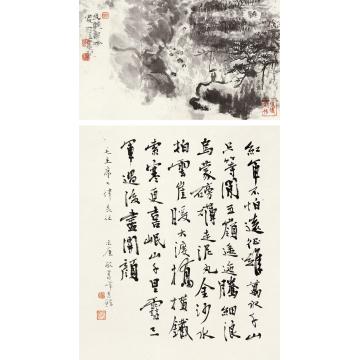 紅軍不怕遠征難萬水千山
只等閒五嶺逶迤騰細浪
烏蒙磅礴走泥丸金沙水
拍雲崖暖大渡橋橫鐵
索寒更喜岷山千里雪三
軍過後盡開顏
毛主席七律長征